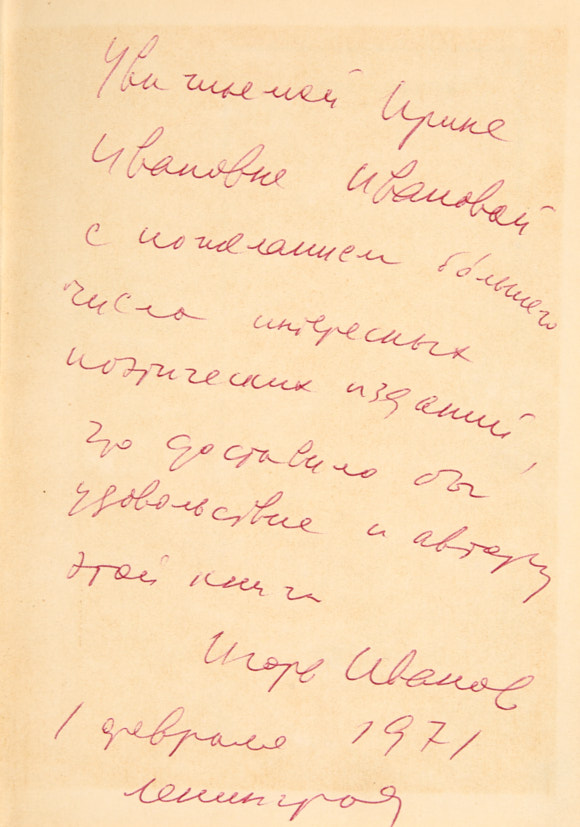 Уважаемой Ирине
Ивановне Ивановой
с пожеланием бо́льшего
числа интересных
поэтических изданий,
что доставило бы
удовольствие и автору
этой книги
Игорь Иванов
1 февраля 1971
Ленинград